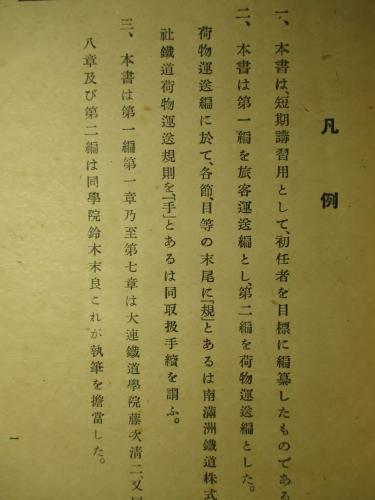 凡例
一、本書は、短期講習用として、初任者を目標に編纂したものである
二、本書は第一編を旅客運送編とし、第二編を荷物運送編とした。
荷物運送編に於て、各節、目等の末尾に「規」とあるは南滿洲鐵道株式
社鐵道荷物運送規則を、「手」とあるは同取扱手續を謂ふ。
三、本書は第一編第一章乃至第七章は大連鐵道學院藤次清二、又
八章及び第二編は同學院鈴木末良これが執筆を擔當した。
一